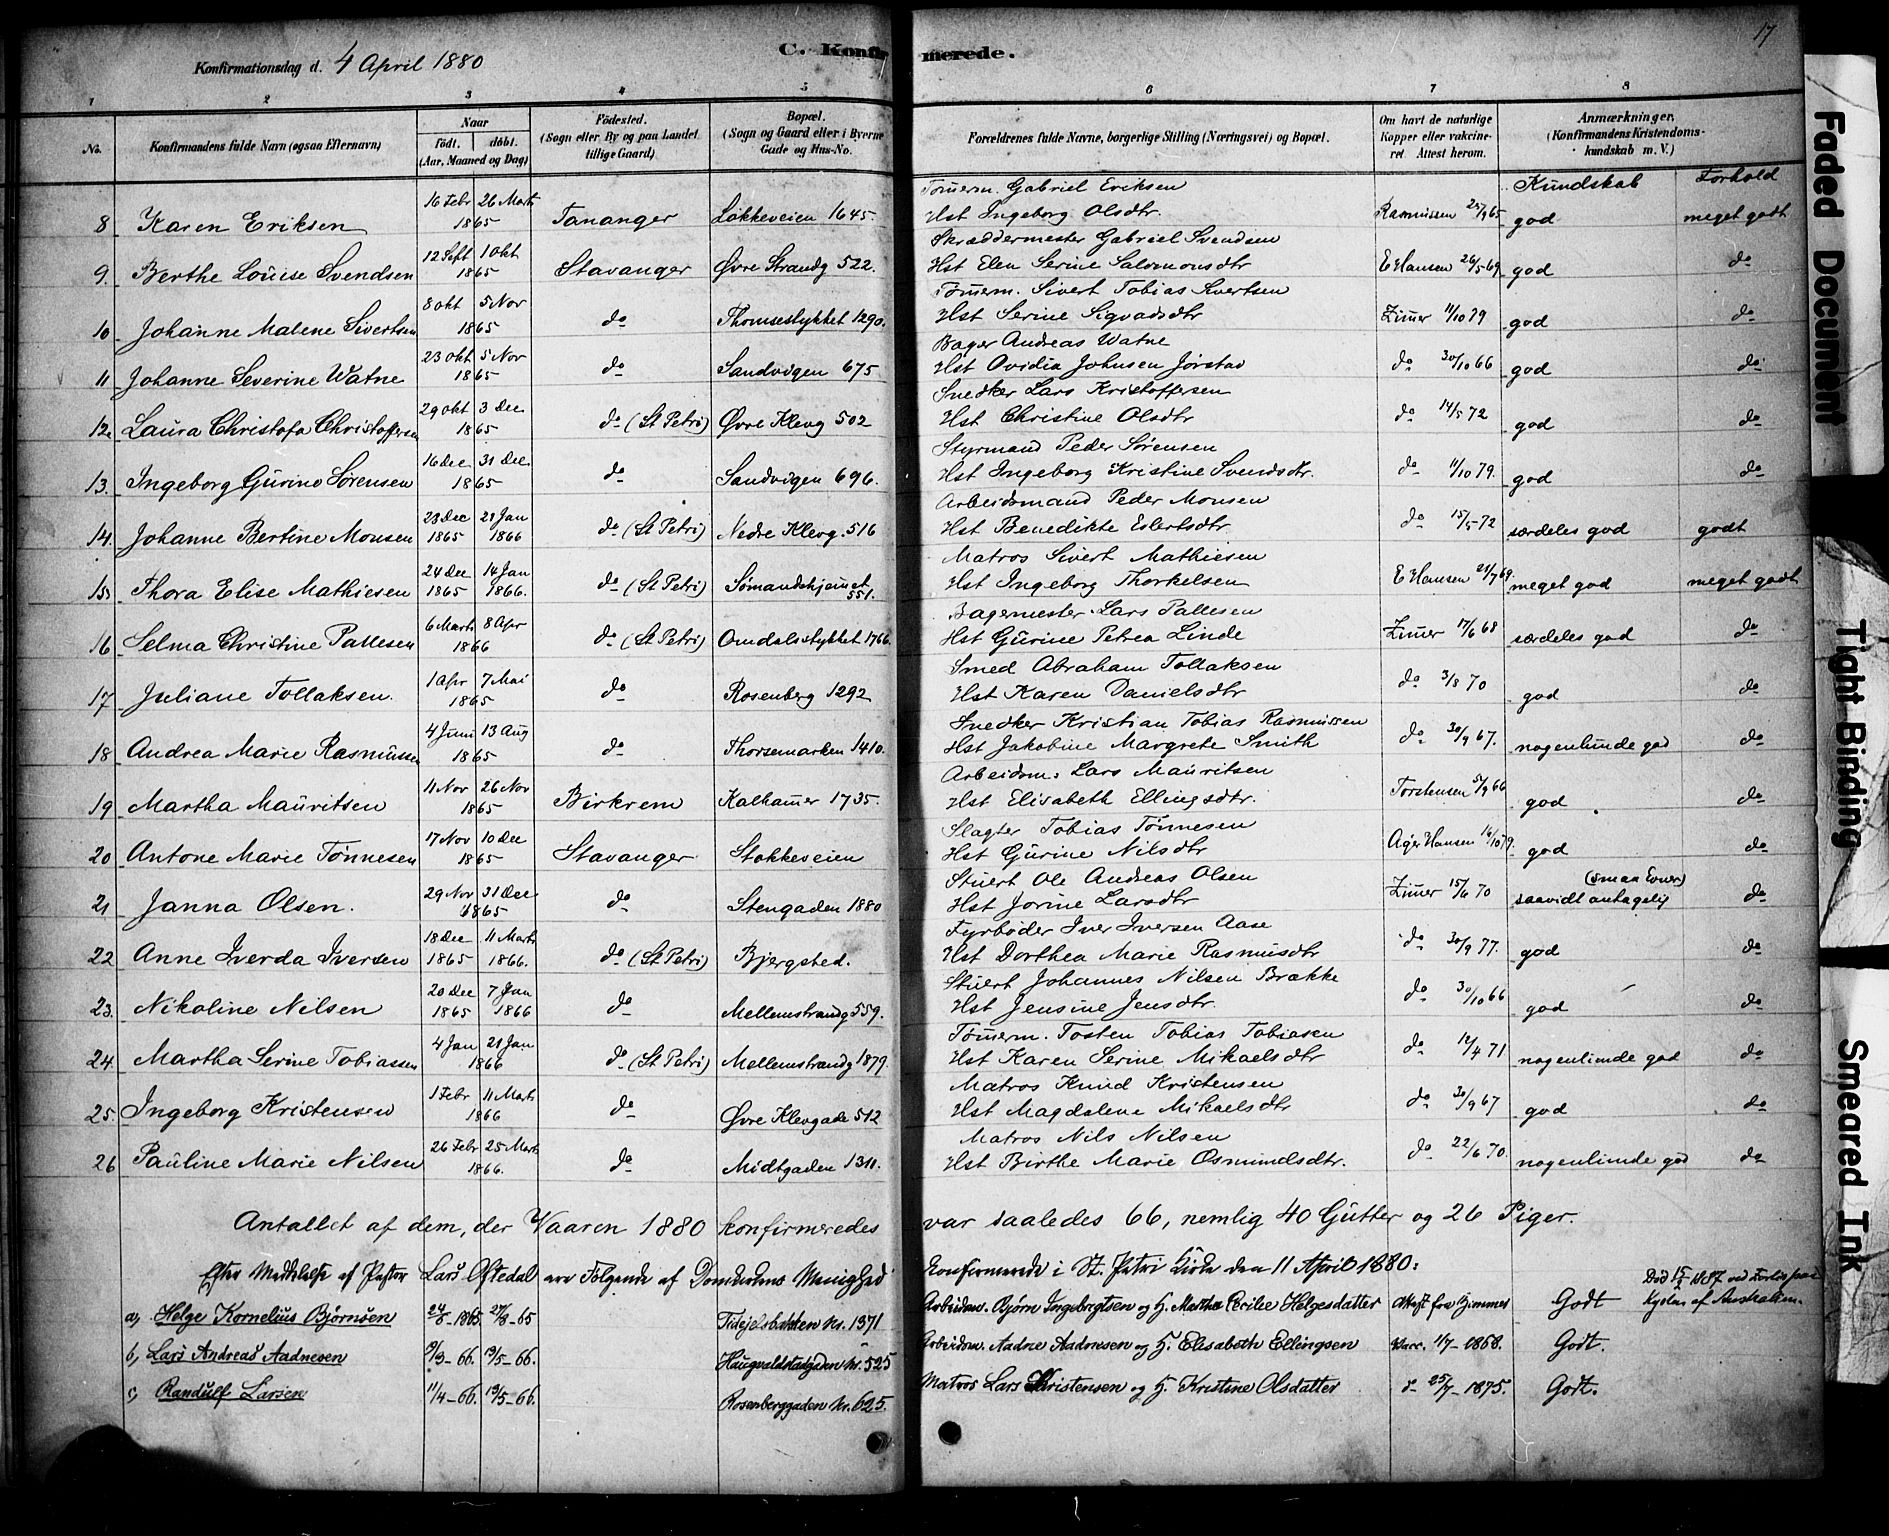 Konfirmationsdag d. 4 April 1880
C. Konfirmerede.
17
1 2 3 4 5 6 7 8
No.
Konfirmandens fulde Navn (ogsaa Efternavn)
Naar
Födt. döbt.
(Aar, Maaned og Dag)
Födested.
(Sogn eller By og paa Landet tillige Gaard)
Bopæl.
(Sogn og Gaard eller i Byerne Gade og Hus-No.
Forældrenes fulde Navne, borgerlige Stilling (Næringsvei) og Bopæl.
Om havt de naturlige Kopper eller vakcineret Attest herom.
Anmærkninger.
(Konfirmandens Kristendomskundskab m. V.)
Kundskab Forhold
8 Karen Eriksen 16 Febr 26 Marts 1865 Tananger Løkkeveien 1645. Tømerm. Gabriel Eriksen Hst Ingeborg Olsdtr. Rasmussen 25/9 65 god meget godt
9. Berthe Louise Svendsen 12 Sept 1 Okt 1865 Stavanger Øvre Strandg 522. Skræddermester Gabriel Svendsen Hst Elen Serine Salomonsdtr E Hansen 26/5 69 god do
10 Johanne Malene Sivertsen 8 Okt 5 Nov 1865 do Thomsestykket 1290. Tømerm. Sivert Tobias Sivertsen Hst Serine Sigvadsdtr Zimer 11/10 79 god do
11 Johanne Severine Watne 23 Okt 5 Nov 1865 do Sandvigen 675 Bager Andreas Watne Hst Ovidia Johnsen Jørstad do 30/10 66 god do
12. Laura Christofa Christoffersen 29 Okt 3 Dec 1865 do (St Petri) Øvre Klevg 502 Snedker Lars Kristoffersen Hst Christine Olsdtr do 14/5 72 god do
13. Ingeborg Gurine Sørensen 16 Dec 31 Dec 1865 do Sandvigen 696. Styrmand Peder Sørensen Hst Ingeborg Kristine Svendsdtr. do 11/10 79. god do
14. Johanne Bertine Monsen 23 Dec 1865 21 Jan 1866 do (St Petri) Nedre Klevg. 516 Arbeidsmand Peder Monsen Hst Benedikte Eilertsdtr do 15/5 72 særdeles god godt
15 Thora Elise Mathiesen 24 Dec 1865 14 Jan 1866. do (St Petri) Sømandshjemet 551. Matros Sivert Mathiesen Hst Ingeborg Thorkelsen E Hansen 21/7 69. meget god meget godt
16 Selma Christine Pallesen 6 Marts 8 Apr 1866 do (St Petri) Omdalsstykket 1766. Bagermester Lars Pallesen Hst Gurine Petrea Linde Zimer 17/6 68 særdeles god do
17 Juliane Tollaksen. 1 Apr 7 Mai 1865 do Rosenberg 1292 Smed Abraham Tollaksen Hst Karen Danielsdtr do 3/8 70 god do
18 Andrea Marie Rasmussen 4 Juni 13 Aug 1865 do Thorsemarken 1410. Snedker Kristian Tobias Rasmussen Hst Jakobine Margrete Smith do 30/9 67. nogenlunde god do
19 Martha Mauritsen 11 Nov 26 Nov 1865 Birkrem Kalhamer 1735. Arbeidsm: Lars Mauritsen Hst Elisabeth Ellingsdtr. Torstensen 5/9 66 god do
20 Antone Marie Tønnesen 17 Nov 10 Dec 1865 Stavanger Stokkeveien Slagter Tobias Tønnesen Hst Gurine Nilsdtr Ager Hansen 14/10 79. god do
21 Janna Olsen. 29 Nov 31 Dec 1865 do Stengaden 1880 Stuert Ole Andreas Olsen Hst Jorine Larsdtr Zimer 15/6 70 (smaa Evner) saavidt antagelig do
22 Anne Iverda Iversen 18 Dec 1865 11 Marts 1866. do (St Petri) Bjergsted. Fyrbøder Iver Iversen Aase Hst Dorthea Marie Rasmusdtr do 30/9 77. god do
23. Nikoline Nilsen 20 Dec 1865 7 Jan 1866 do Mellemstrandg 559. Stuert Johannes Nilsen Brakke Hst Jensine Jensdtr. do 30/10 66 god do
24. Martha Serine Tobiassen 4 Jan 21 Jan 1866 do (St Petri) Mellemstrandg 1879. Tømerm. Tosten Tobias Tobiasen Hst Karen Serine Mikaelsdtr do 12/4 71 nogenlunde god do
25. Ingeborg Kristensen 1 Febr 11 Marts 1866 do Øvre Klevgade 512 Matros Knud Kristensen Hst Magdalene Mikaelsdtr do 30/9 67 god do
26 Pauline Marie Nilsen 26 Febr 25 Marts 1866. do Midtgaden 1311. Matros Nils Nilsen Hst Birthe Marie Osmundsdtr. do 22/6 70. nogenlunde god do
Antallet af dem, der Vaaren 1880 konfirmeredes var saaledes 66, nemlig 40 Gutter og 26 Piger.
Efter Meddelelse af Pastor Lars Oftedal ere Følgende af Domkirkens Menighed konfirmerede i St. Petri Kirke den 11 April 1880:
a, Helge Kornelius Bjørnsen 24/6-1865 27/8-65 Nr. 1371 Arbeidsm. Bjørn Ingebrigtsen og H. Martha Cecilie Helgesdatter Attest fra Zimmer Godt Død 15/2 1887 ved Kysten af Australien.
b, Lars Andreas Aadnesen 9/3-66. 19/5-66. Haugvaldstadgaden Nr. 525 Arbeidsm. Aadne Aadnesen og H. Elisabeth Ellingsen Vacc. 1/7-1868. Godt.
c, Randulf Larsen 11/4-66. 19/5-66. Rosenberggaden Nr. 625. Matros Lars Christensen og H. Kristine Olsdatter d 25/7-1875. Godt.
Faded Document
Tight Binding
Smeared Ink